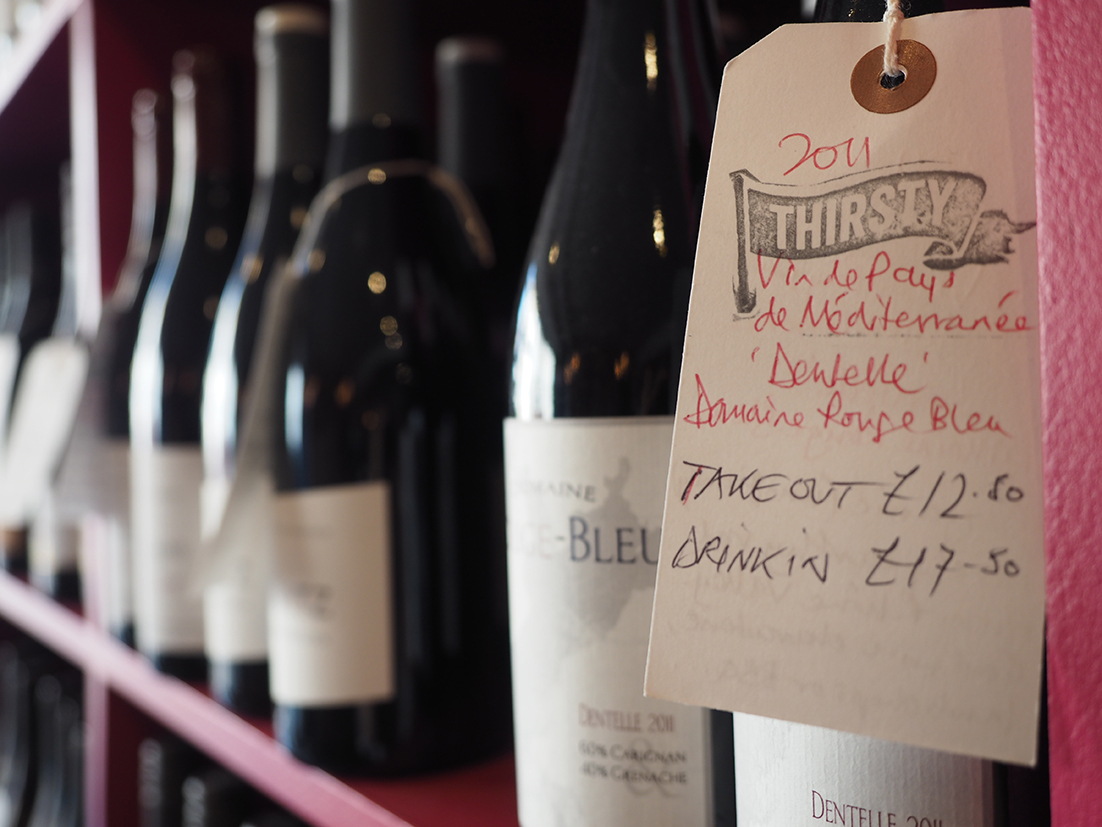 2011
THIRSTY
Vin de Pays
de Méditerranée
'Dentelle'
Domaine Rouge Bleu
TAKEOUT £12.50
DRINK IN £17-50
-BLEU
DENTELLE 2011
60% CARIGNAN
40% GRENACHE
DENTELLE 2011